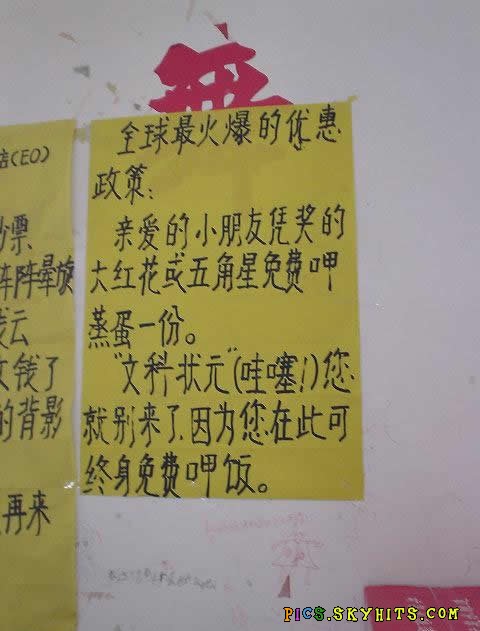 全球最火爆的优惠
政策：
亲爱的小朋友凭奖的
大红花或五角星免费呷
蒸蛋一份。
"文科状元"(哇塞!)您
就别来了.因为您在此可
终身免费呷饭。
(EO)
票
阵阵晕旋
云
钱了
的背影
再来
PICS.SKYHITS.COM